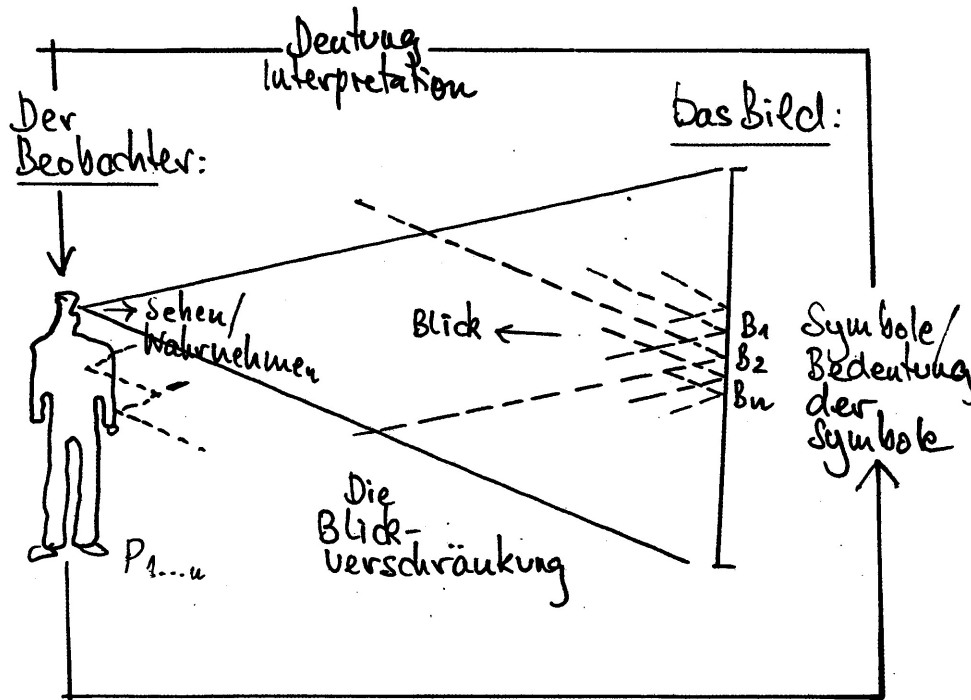 Deutung
Interpretation
Der
Beobachter:
Das Bild:
Sehen/
Wahrnehmen
Blick
B1
B2
Bn
Symbole/
Bedeutung
der
Symbole
Die
Blick-
verschränkung
P1...n